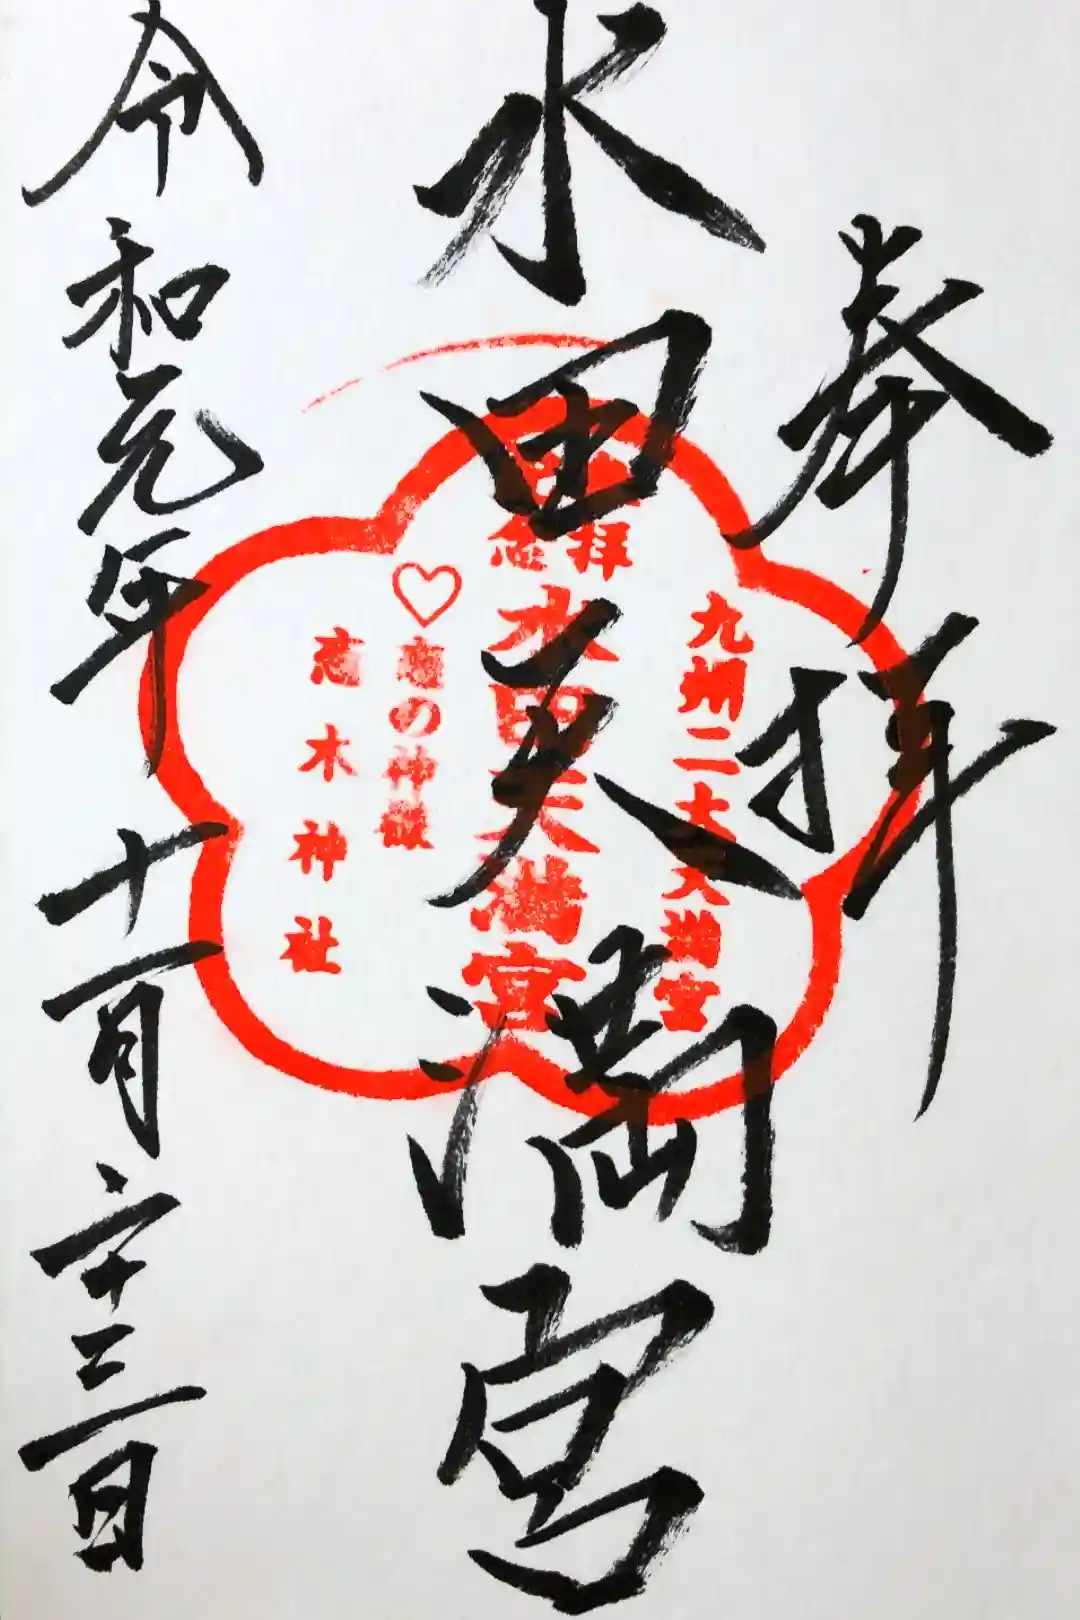 奉拝
水田天満宮
令和元年十一月二十三日
九州二大天満宮
参拝
記念
水田天満宮
♡恋の神様
恋木神社